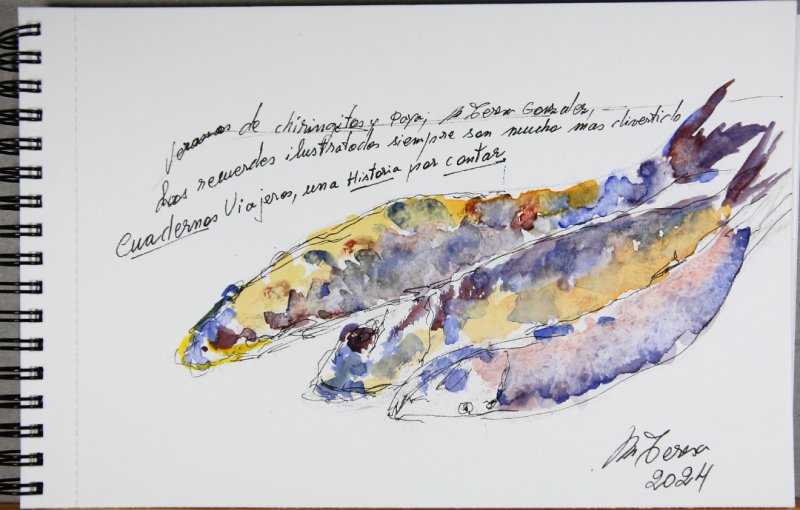 Veranos de chiringitos y Popa, Mª Teresa González,
Los recuerdos ilustrados siempre son mucho mas divertido
Cuadernos Viajeros, una Historia por contar
Mª Teresa
2024